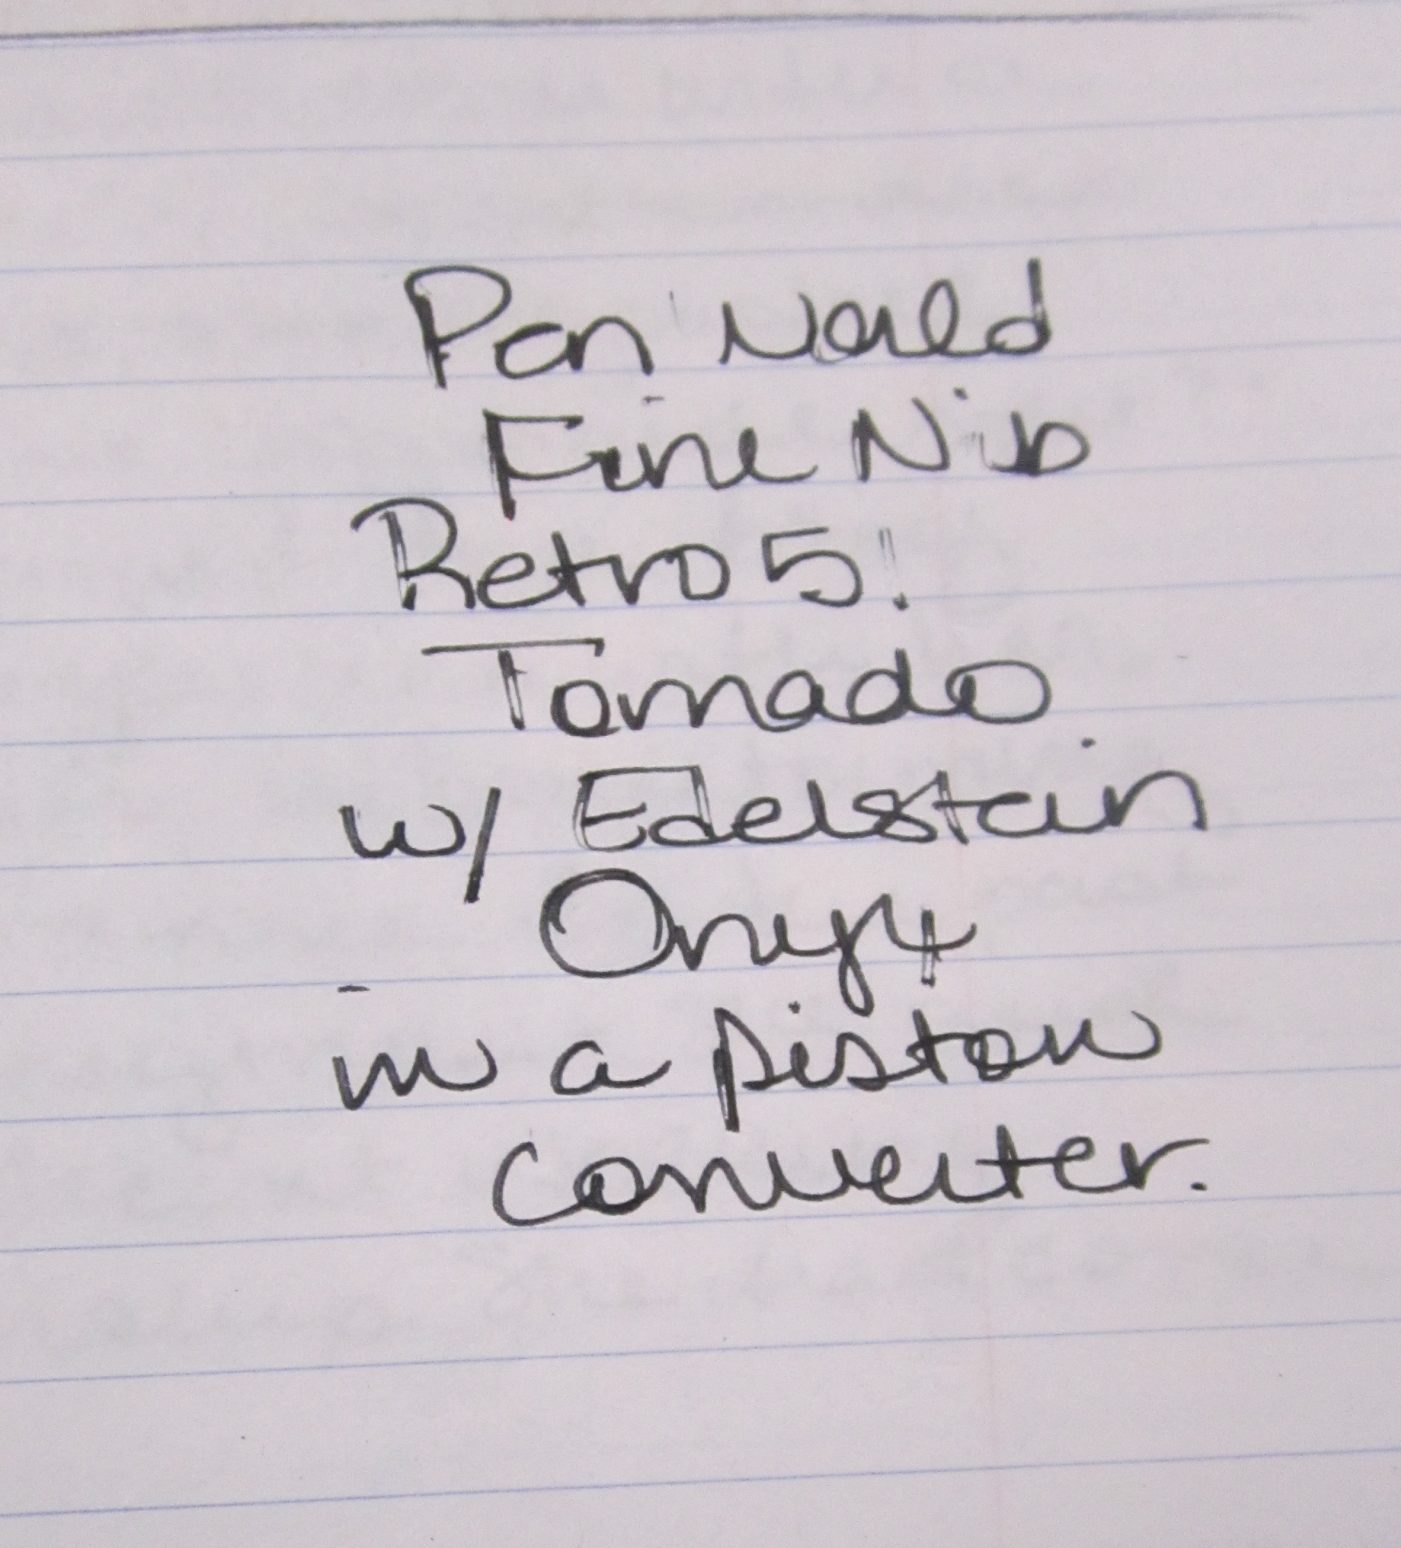 Pen World
Fine Nib
Retro 51
Tornado
w/ Edelstein
Onyx
in a piston
converter.